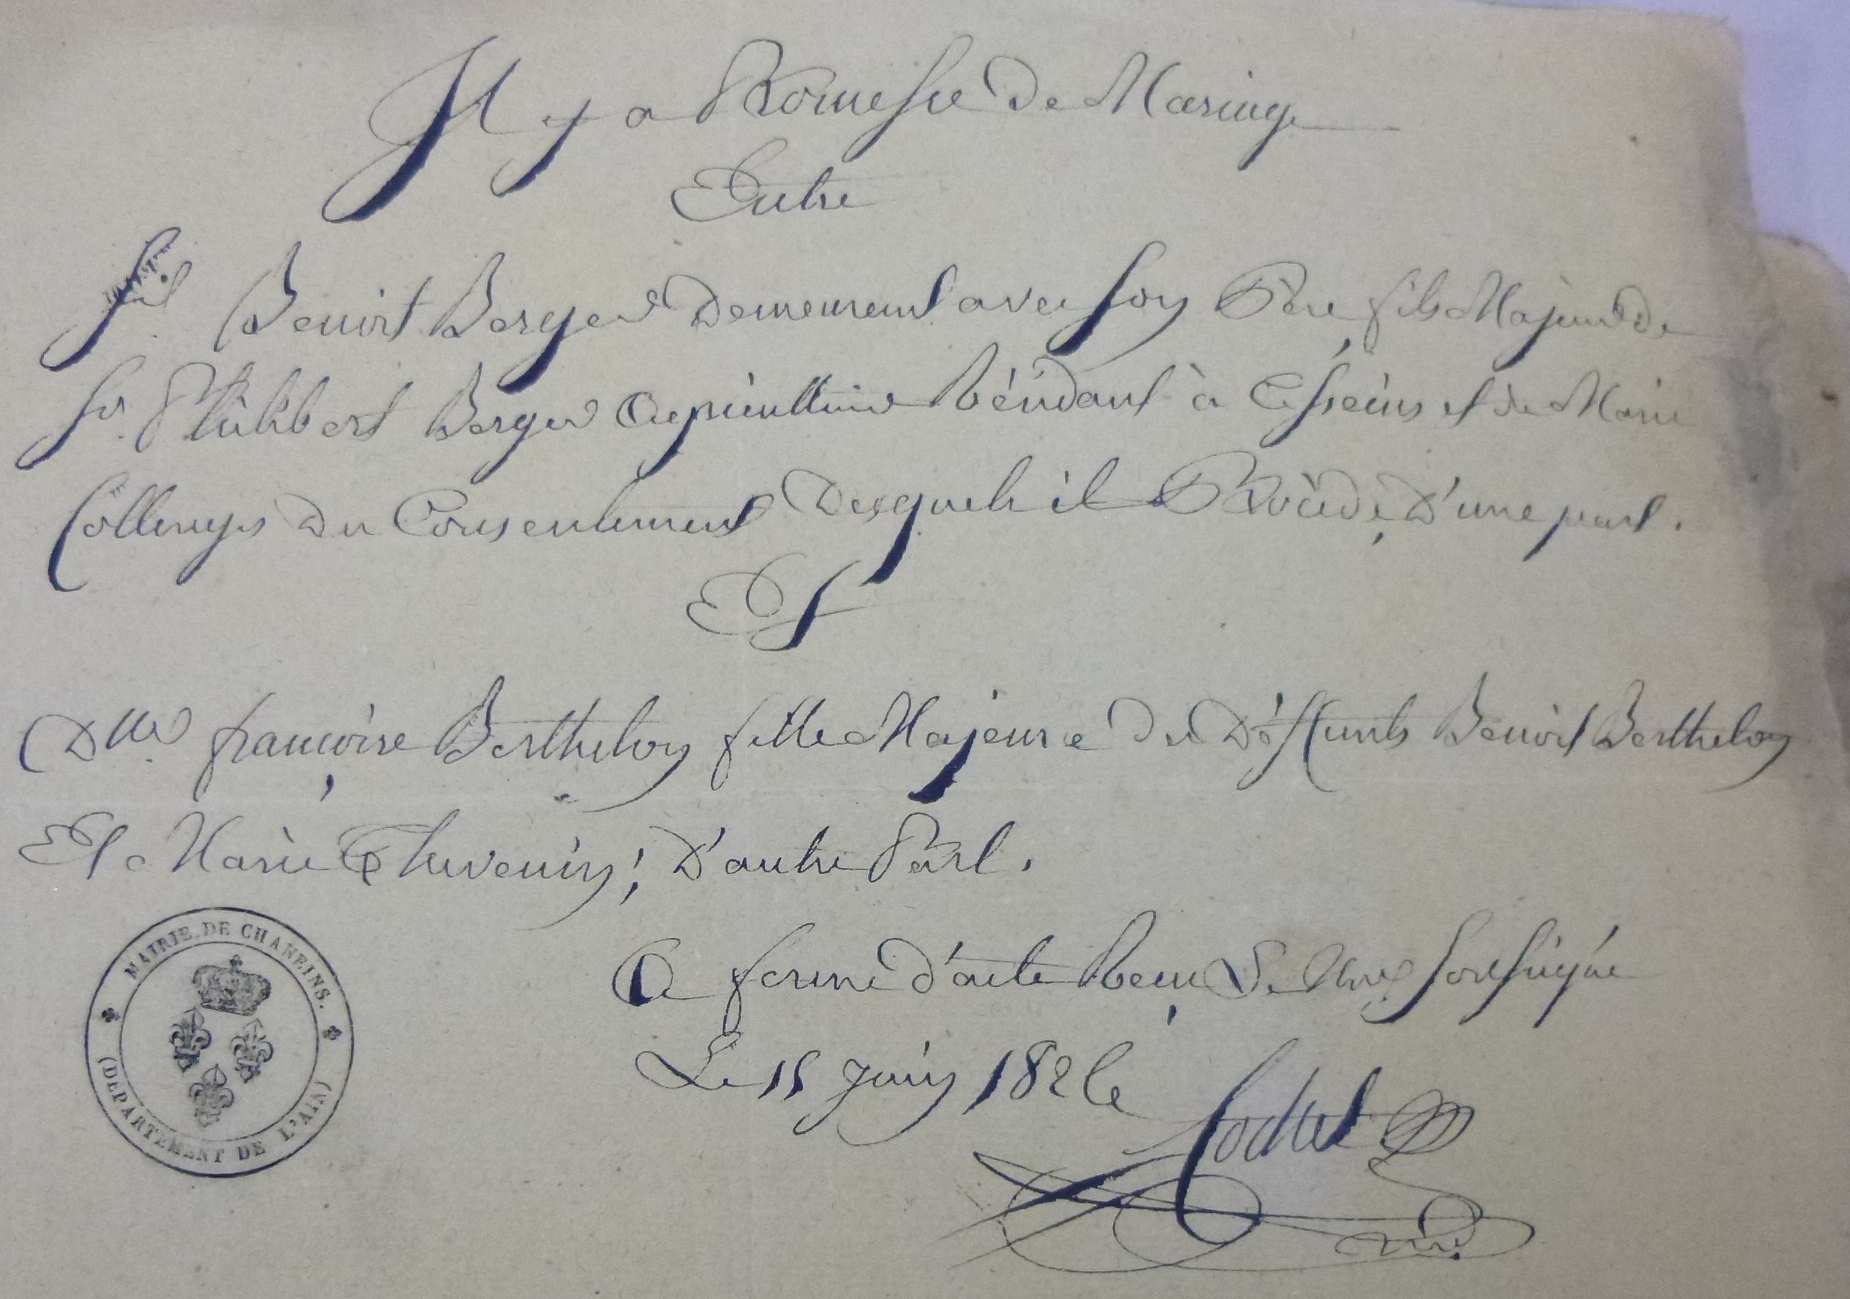 Il y a Promesse de Mariage
Entre
Benoist Berger demeurant avec son Père fils Majeur de
Sr. Philibert Berger Agriculteur Résidant à Cesseins et de Marie
Collonges du Consentement desquels il Procède, D'une part.
Et
Dlle. françoise Berthelon fille Majeure de Défunts Benoist Berthelon
Et Marie Thevenin; D'autre Part.
a forme d'acte Reçu de Nous Soussigné
Le 15 juin 1826
MAIRIE DE CHANEINS.
(DEPARTEMENT DE L'AIN)